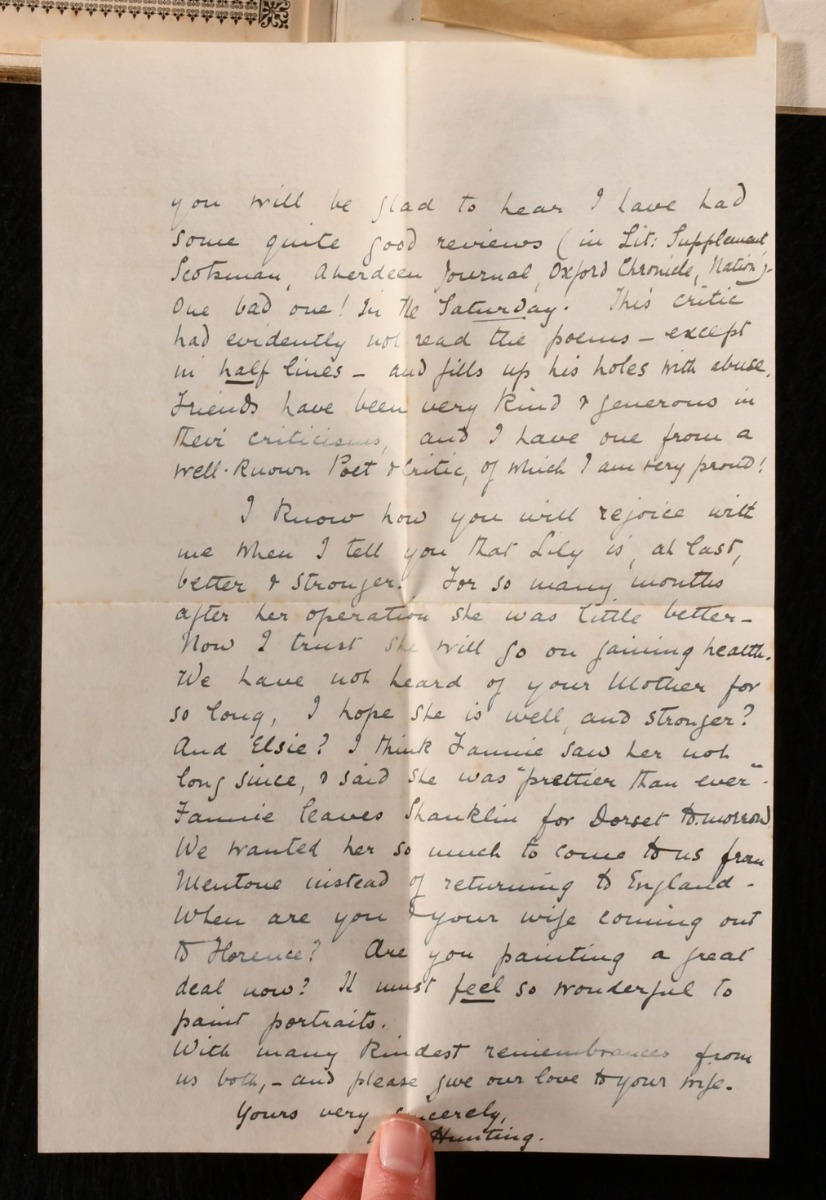 you will be glad to hear I have had
some quite good reviews (in Lit: Supplement,
Scotsman, Aberdeen Journal, Oxford Chronicle, Nation).
One bad one! In the Saturday. This critic
had evidently not read the poems – except
in half lines – and fills up his holes with abuse.
Friends have been very kind & generous in
their criticisms, and I have one from a
well-known Poet & Critic, of which I am very proud!
I know how you will rejoice with
me when I tell you that Lily is, at last,
better & stronger. For so many months
after her operation she was little better –
Now I trust she will go on gaining health.
We have not heard of your Mother for
so long, I hope she is well, and stronger?
And Elsie? I think Fannie saw her not
long since, & said she was "prettier than ever".
Fannie leaves Shanklin for Dorset to-morrow
We wanted her so much to come to us from
Mentone instead of returning to England.
When are you & your wife coming out
to Florence? Are you painting a great
deal now? It must feel so wonderful to
paint portraits.
With many kindest remembrances from
us both, – and please give our love to your wife.
Yours very sincerely,
Hunting.